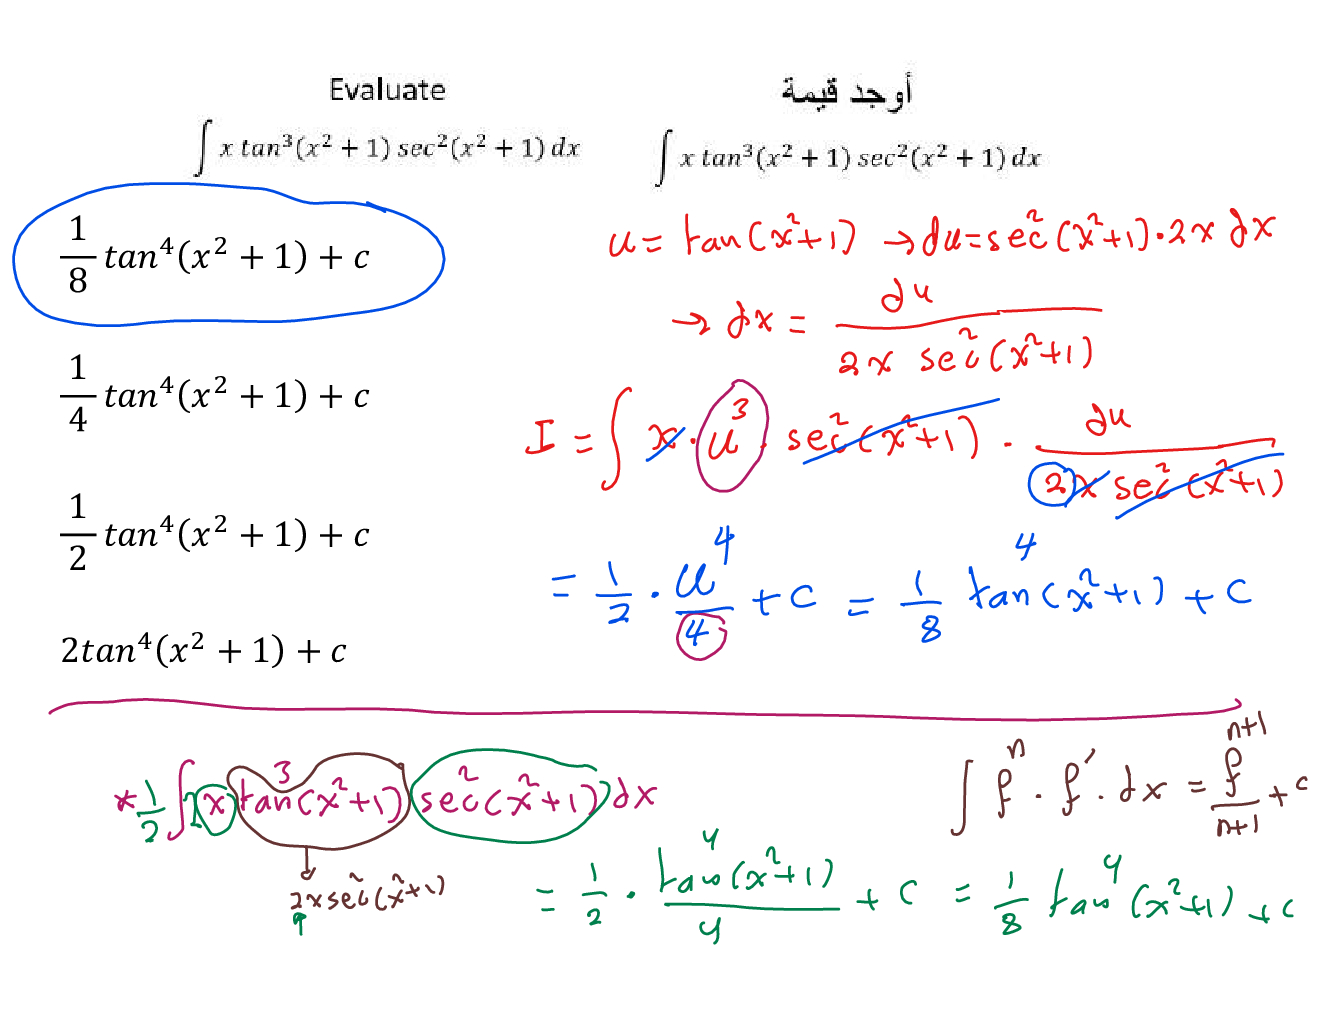 Evaluate
∫ x tan³(x² + 1) sec²(x² + 1) dx
أوجد قيمة
∫ x tan³(x² + 1) sec²(x² + 1) dx
1/8 tan⁴(x² + 1) + c
1/4 tan⁴(x² + 1) + c
1/2 tan⁴(x² + 1) + c
2tan⁴(x² + 1) + c
u = tan(x²+1) → du = sec²(x²+1)·2x dx
→ dx = du / 2x sec²(x²+1)
I = ∫ x · u³ · sec²(x²+1) · du / 2x sec²(x²+1)
= 1/2 · u⁴/4 + c = 1/8 tan⁴(x²+1) + c
* 1/2 ∫ 2x tan³(x²+1) sec²(x²+1) dx
2x sec²(x²+1)
∫ fⁿ · f′ · dx = fⁿ⁺¹/n+1 + c
= 1/2 · tan⁴(x²+1)/4 + c = 1/8 tan⁴(x²+1) + c